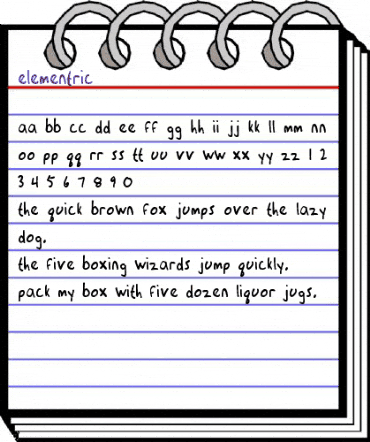 elementric
aa bb cc dd ee ff gg hh ii jj kk ll mm nn
oo pp qq rr ss tt uu vv ww xx yy zz 1 2
3 4 5 6 7 8 9 0
the quick brown fox jumps over the lazy
dog.
the five boxing wizards jump quickly.
pack my box with five dozen liquor jugs.